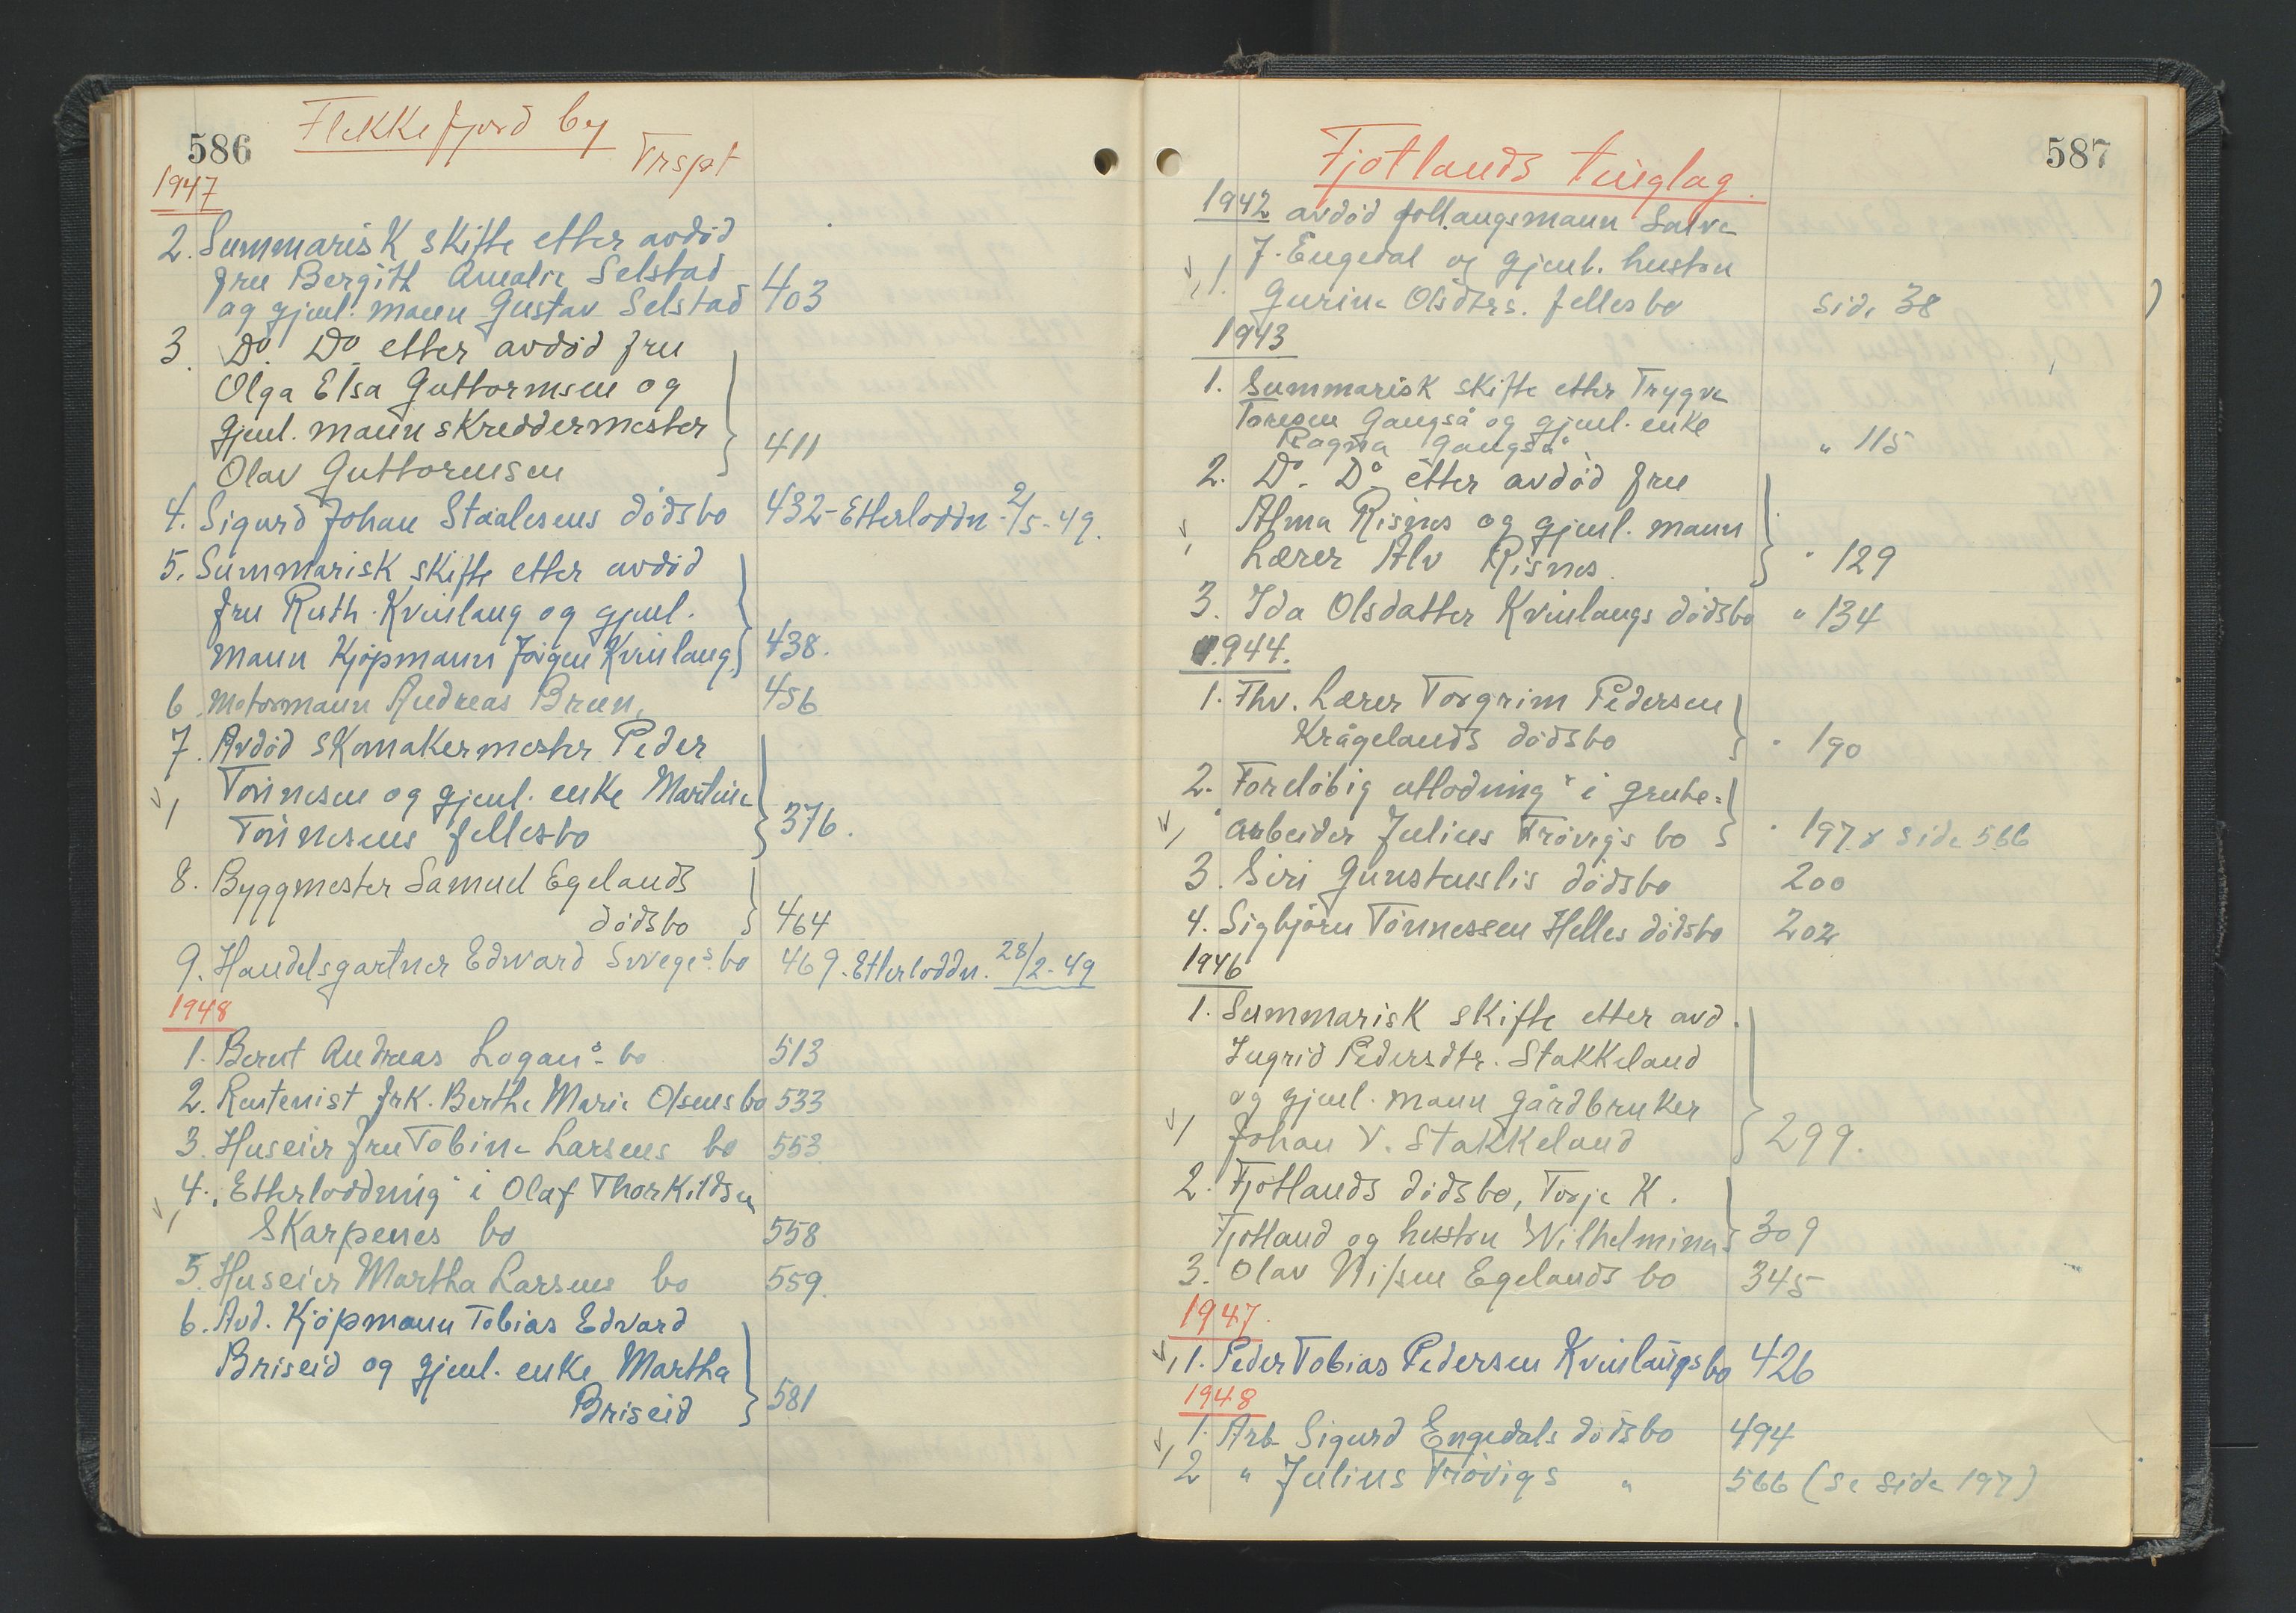 586
Flekkefjord by
Trspt
1947
2. Summarisk skifte etter avdöd
fru Bergith Amalie Selstad
og gjenl. mann Gustav Selstad 403
3. Do. Do. etter avdöd fru
Olga Elsa Guttormsen og
gjenl. mann skreddermester
Olav Guttormsen 411
4. Sigurd Johan Staalesens dödsbo 432 - Etterloddn. 2/5-49.
5. Summarisk skifte etter avdöd
fru Ruth Kvinlaug og gjenl.
mann Kjöpmann Jörgen Kvinlaug 438.
6. Motormann Andreas Breen, 456
7. Avdöd skomakermester Peder
Tönnesen og gjenl. enke Martine
Tönnesens fellesbo 376.
8. Byggmester Samuel Egelands
dödsbo 464
9. Handelsgartner Edvard bo 469. Etterloddn. 28/2-49
1948
1. Bernt Andreas Logans bo 513
2. Rentenist frk. Berthe Marie Olsens bo 533
3. Huseier fru Tobine Larsens bo 553
4. "Etterloddning" i Olaf Thorkildsen
Skarpenes bo 558
5. Huseier Martha Larsens bo 559.
6. Avd. Kjöpmann Tobias Edvard
Briseid og gjenl. enke Martha
Briseid 581
587
Fjotlands tinglag.
1942 avdöd Salve
1. J. Engedal og gjenl. hustru
Gurine Olsdtrs. fellesbo side 38
1943
1. Summarisk skifte etter Trygve
Toresen Gangså og gjenl. enke
Ragna Gangså " 115
2. Do. Do. etter avdöd fru
Alma Risnes og gjenl. mann
Lærer Alv Risnes. " 129
3. Ida Olsdatter Kvinlaugs dödsbo " 134
1944.
1. Fhv. Lærer Torgrim Pedersen
Krågelands dödsbo " 190
2. "Forelöbig utlodning" i grube-
arbeider Julius Trövigs bo " 197 x side 566
3. Siri Gunstenslis dödsbo 200
4. Sigbjörn Tönnessen Helles dödsbo 202
1946
1. Summarisk skifte etter avd.
Ingrid Pedersdtr. Stakkeland
og gjenl. mann gårdbruker
Johan V. Stakkeland 299.
2. Fjotlands dödsbo, Torje K.
Fjotland og hustru Wilhelmina 309
3. Olav Nilsen Egelands bo 345
1947.
1. Peder Tobias Pedersen Kvinlaugs bo 426
1948
1. Arb. Sigurd Engedals dödsbo 494
2 " Julius Trövigs " 566 (se side 197)